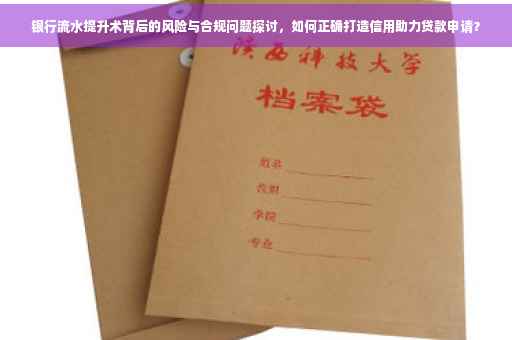 银行流水提升术背后的风险与合规问题探讨，如何正确打造信用助力贷款申请？
陕西科技大学
档案袋
姓名
性别
学院
专业